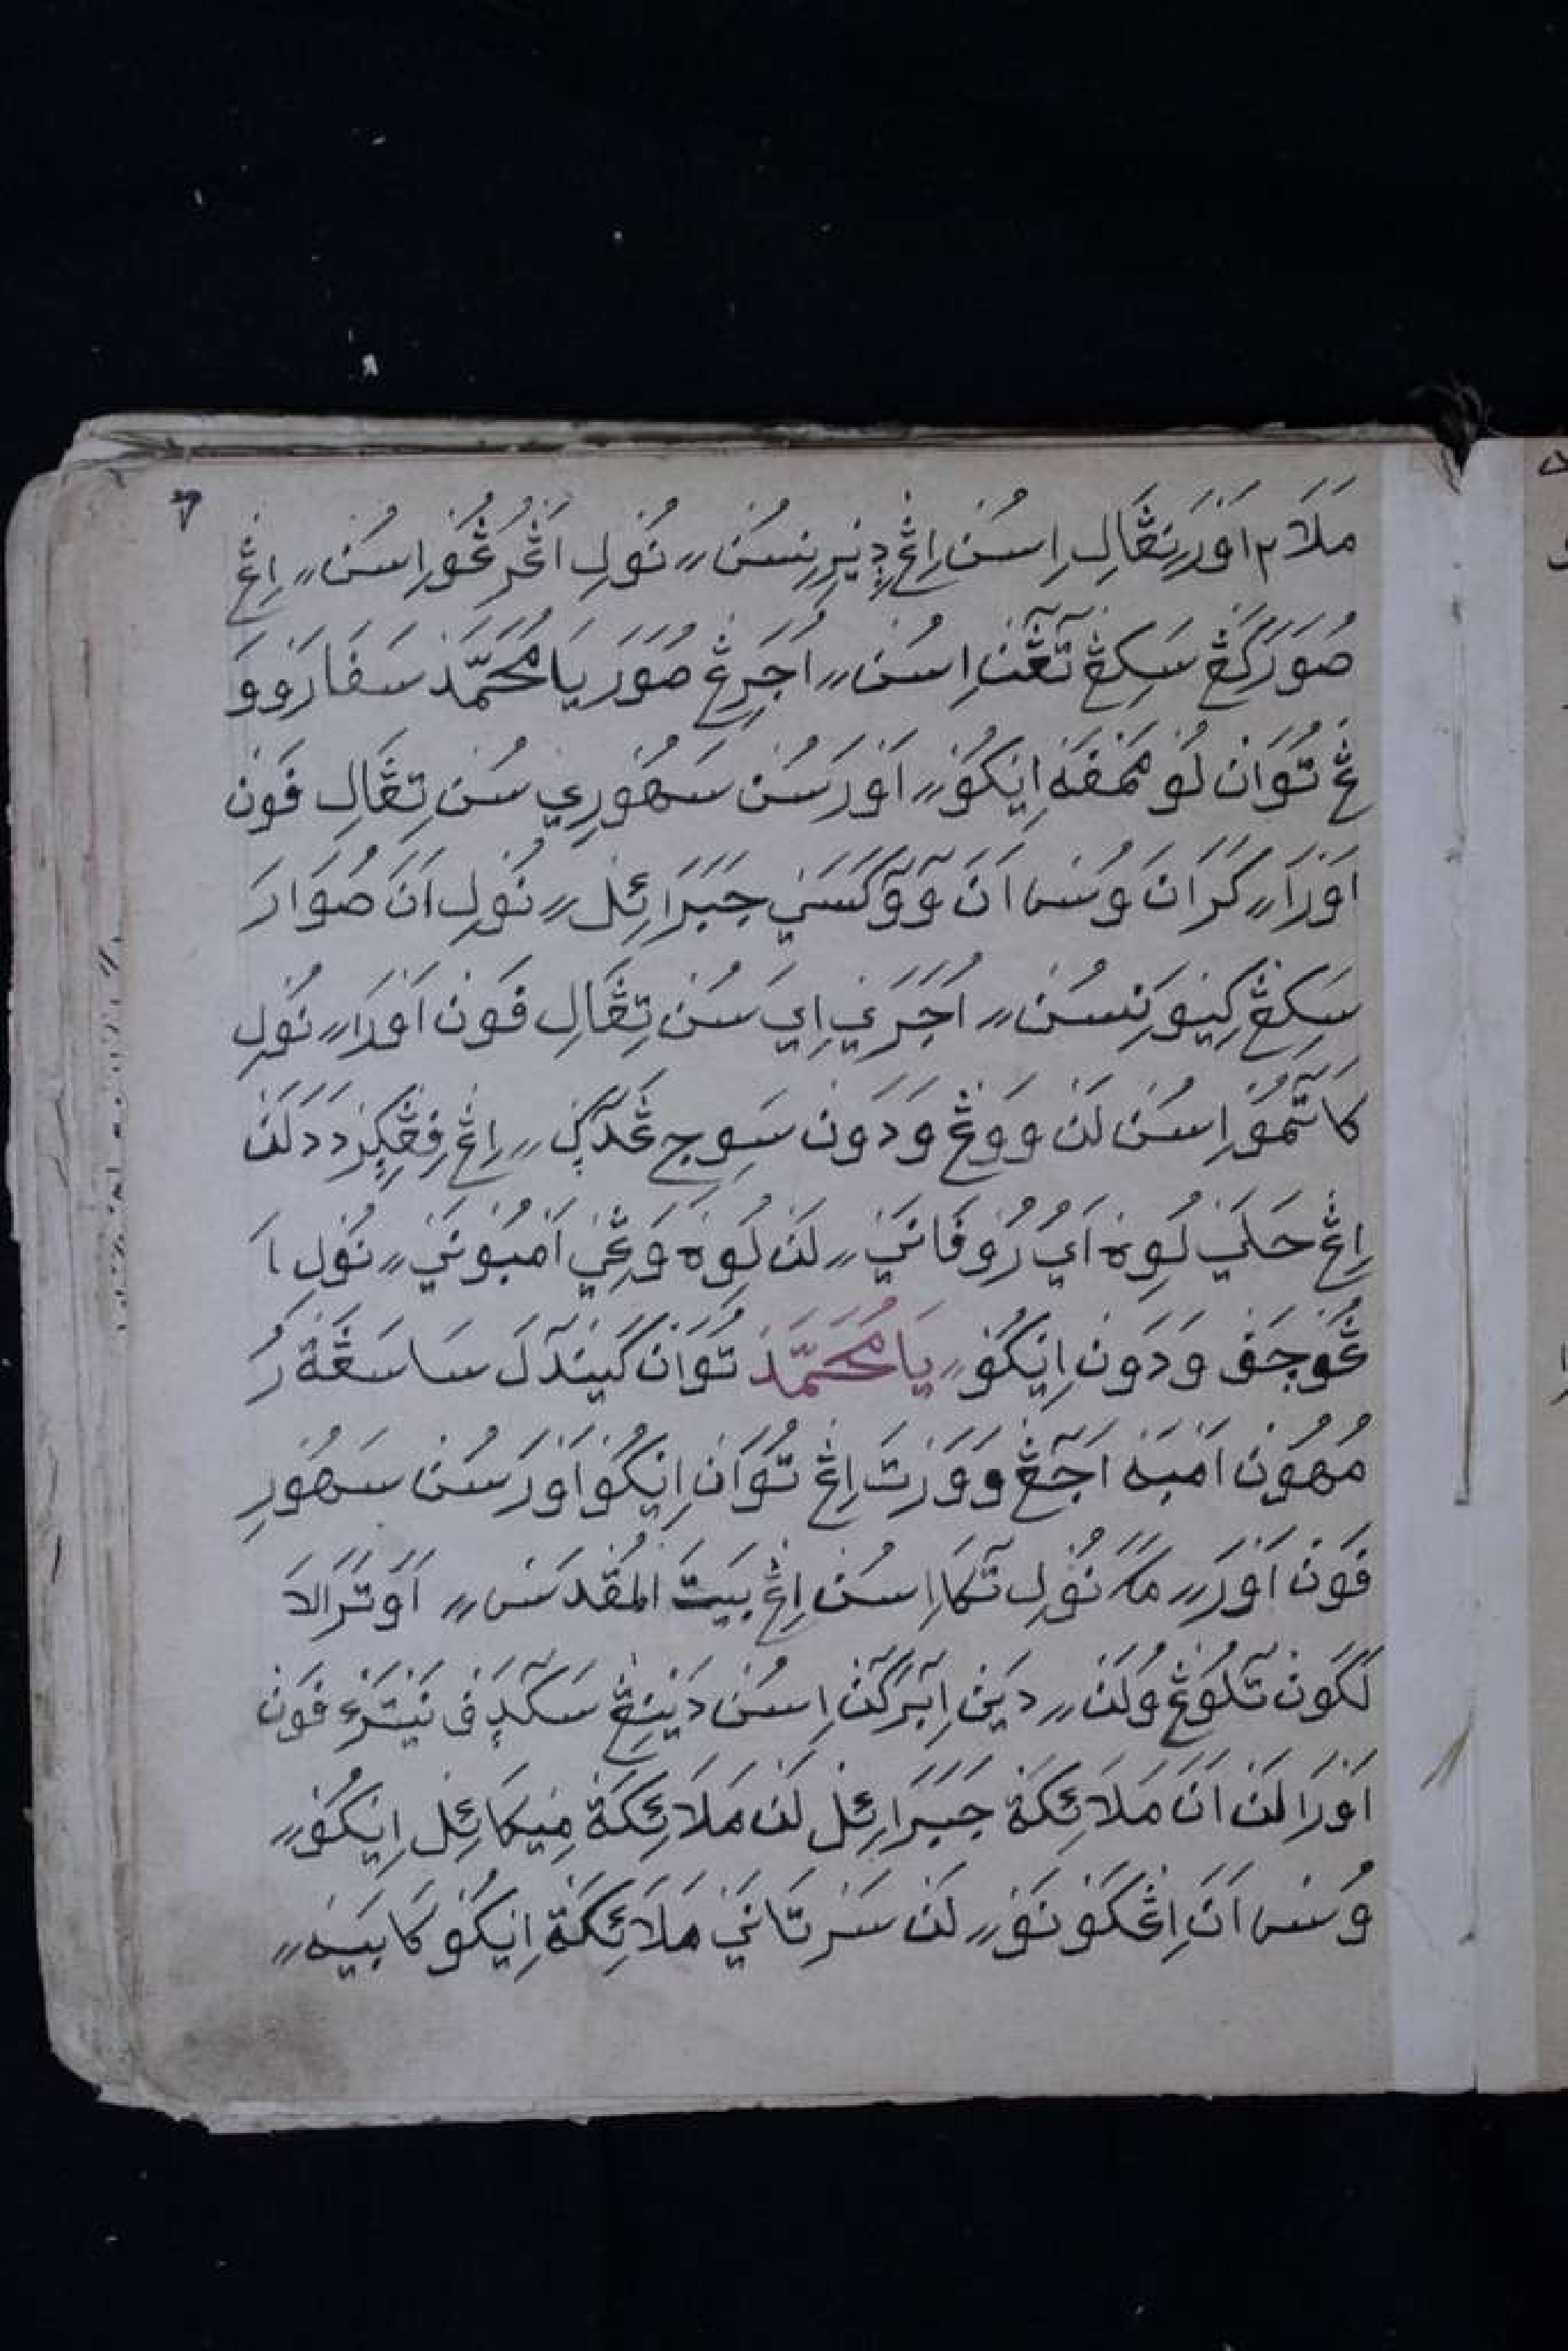 ٦
مَلَام اَوْرَ نِڠَالِ اِسُنْ اِڠْ دٍيْرِنِسُنْ ⹁⹁ نُوْلِ اَڠْرُڠُوْ اِسُنْ ⹁⹁ اِڠْ
صُوَرَكَڠْ سَكِڠْ تَڠَنْ اِسُنْ ⹁⹁ اُجَرِڠْ صُوَرَ يَا مُحَمَّدْ سَفَارَنْ وَوَ
ڠْ تُوَانْ لُوْمَمْفَهْ اِيْكُوْ ⹁⹁ اَوْرَ سُنْ سَهُوْرِيْ سُنْ تِڠَالِ فَوْنْ
اَوْرَا ⹁⹁ كَرَانَ وُسْ اَنَ وَوٓكَسَيْ جَبَرَائِلْ ⹁⹁ نُوْلِ اَنَ صُوَارَ
سَكِڠْ كِيْوَ نِسُنْ ⹁⹁ اُجَرَيْ اِيَ سُنْ تِڠَالِ فَوْنْ اَوْرَا ⹁⹁ نُوْلِ
كَاتٓمُوْ اِسُنْ لَنْ وَوڠْ وَدَوْنْ سَوِجِ ڠَدٓكْ ⹁⹁ اِڠْ فِڠْكِرْ دَدَلَنْ
اِڠْ حَلَيْ لُوِهْ اَيُ رُوْفَانَيْ ⹁⹁ لَنْ لُوِهْ وَڠِيْ اَمْبُوْنَيْ ⹁⹁ نُوْلِ اَ
ڠُوْجَفْ وَدَوْنْ اِيْكُوْ ⹁⹁ يَا مُحَمَّدْ تُوَانْ كَيْنْدٓلَ سَاسَڠَةْ رُ
مُهُوْنْ اَمْبَهْ اَجٓڠْ وَوَرْتَ اِڠْ تُوَانْ اِيْكُوْ اَوْرَ سُنْ سَهُوْرِ
فَوْنْ اَوْرَ ⹁⹁ مَكَ نُوْلِ تٓكَا اِسُنْ اِڠْ بَيْتَ الْمُقَدَسْ ⹁⹁ اَوْتَرَالَا
لَكَوْنْ تٓلُوْڠْ وُلَنْ ⹁⹁ دَيْنْ اِبٓرَكٓنْ اِسُنْ دَيْنِڠْ سَكٓدَفْ نَيْتْرَءْ فَوْنْ
اَوْرَا لَنْ اَنَ مَلَائِكَةْ جَبَرَائِلْ لَنْ مَلَائِكَةْ مِيْكَائِلْ اِيْكُوْ ⹁⹁
وُسْ اَنَ اِڠْكَوْنَوْ ⹁⹁ لَنْ سَرْتَانَيْ مَلَائِكَةْ اِيْكُوْ كَابَيْهْ ⹁⹁